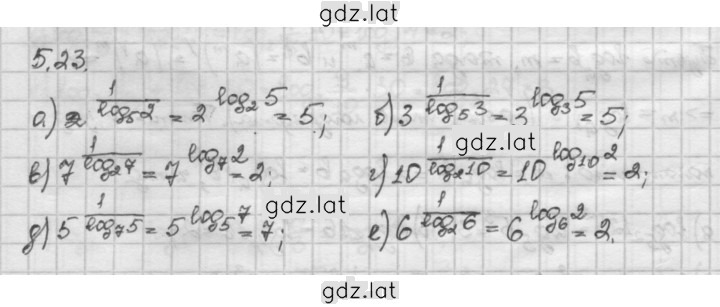 gdz.lat
5.23.
а) 2^(1/log₅2) = 2^(log₂5) = 5; б) 3^(1/log₅3) = 3^(log₃5) = 5;
gdz.lat
в) 7^(1/log₂7) = 7^(log₇2) = 2; г) 10^(1/log₂10) = 10^(log₁₀2) = 2;
gdz.lat
д) 5^(1/log₇5) = 5^(log₅7) = 7; е) 6^(1/log₂6) = 6^(log₆2) = 2.
gdz.lat